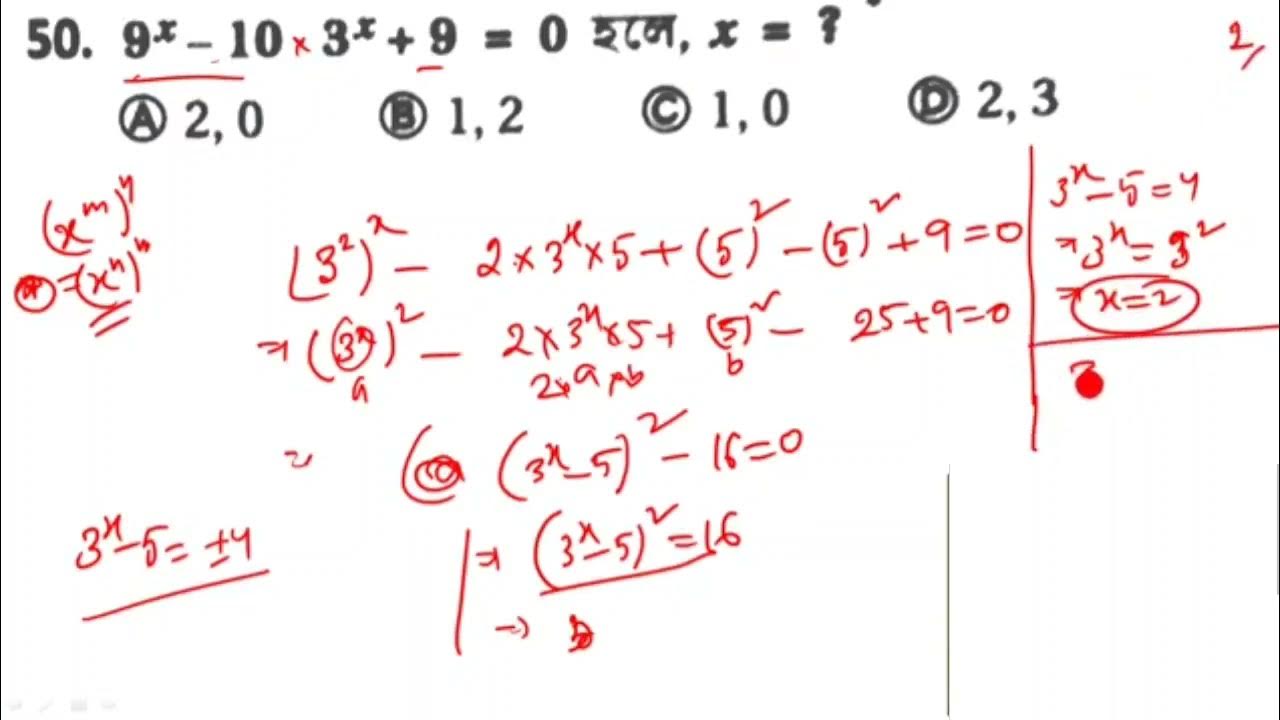 50. 9ˣ – 10 × 3ˣ + 9 = 0 হলে, x = ?
2,
Ⓐ 2, 0 Ⓑ 1, 2 Ⓒ 1, 0 Ⓓ 2, 3
(xᵐ)ⁿ
= (xⁿ)ᵐ
(3²)ˣ – 2 × 3ˣ × 5 + (5)² – (5)² + 9 = 0
⇒ (3ˣ)² – 2 × 3ˣ × 5 + (5)² – 25 + 9 = 0
a 2×a×b b
(3ˣ – 5)² – 16 = 0
⇒ (3ˣ – 5)² = 16
⇒
3ˣ – 5 = ±4
3ˣ – 5 = 4
⇒ 3ˣ = 3²
⇒ x = 2